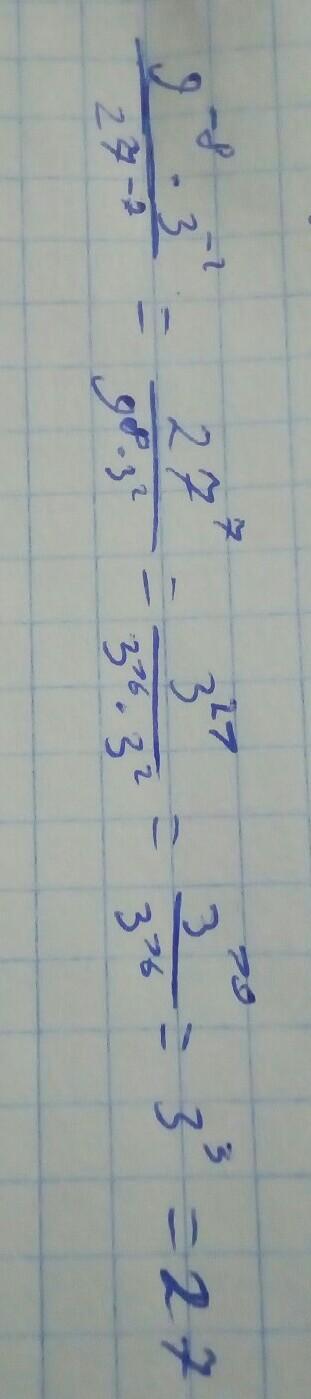 9^-8 · 3^-2 / 27^-7 = 27^7 / 9^8 · 3^2 = 3^21 / 3^16 · 3^2 = 3^19 / 3^16 = 3^3 = 27